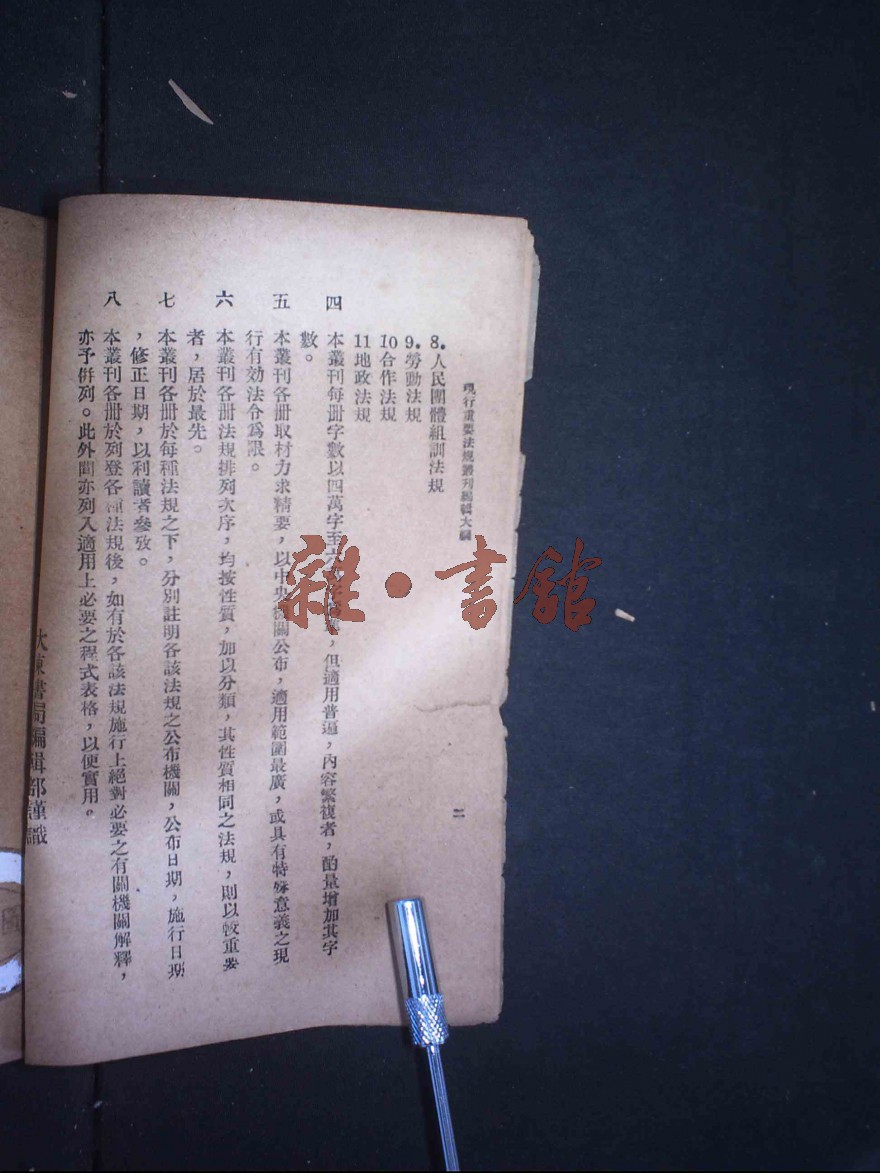 現行重要法規叢刊編輯大綱
二
8.人民團體組訓法規
9.勞動法規
10合作法規
11地政法規
四 本叢刊每冊字數以四萬字至六,但適用普遍,內容繁複者,酌量增加其字
數。
五 本叢刊各冊取材力求精要,以中央機關公布,適用範圍最廣,或具有特殊意義之現
行有效法令爲限。
六 本叢刊各冊法規排列次序,均按性質,加以分類,其性質相同之法規,則以較重要
者,居於最先。
七 本叢刊各冊於每種法規之下,分別註明各該法規之公布機關,公布日期,施行日期
,修正日期,以利讀者參攷。
八 本叢刊各冊於列登各種法規後,如有於各該法規施行上絕對必要之有關機關解釋,
亦予併列。此外間亦列入適用上必要之程式表格,以便實用。
大東書局編輯部謹識
雜·書館